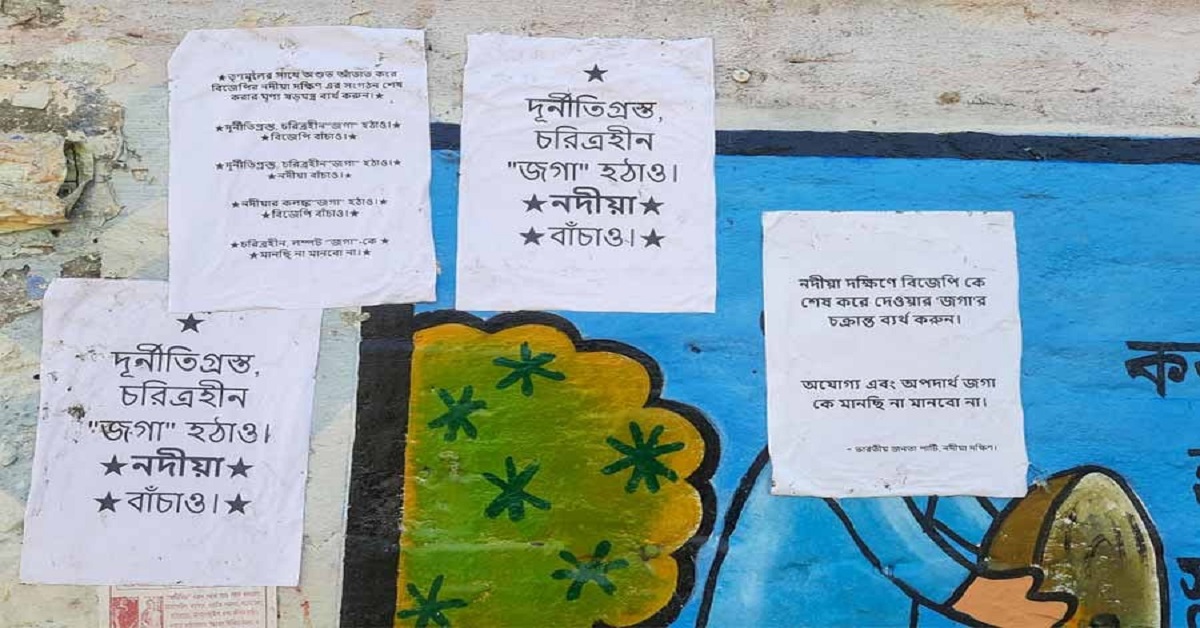 ★তৃণমূলের সাথে অশুভ আঁতাত করে
বিজেপির নদীয়া দক্ষিণ এর সংগঠন শেষ
করার ঘৃণ্য ষড়যন্ত্র ব্যর্থ করুন।★
★দূর্নীতিগ্রস্ত, চরিত্রহীন"জগা" হঠাও।★
★বিজেপি বাঁচাও।★
★দূর্নীতিগ্রস্ত, চরিত্রহীন"জগা" হঠাও।★
★নদীয়া বাঁচাও।★
★নদীয়ার কলঙ্ক"জগা" হঠাও।★
★বিজেপি বাঁচাও।★
★চরিত্রহীন, লম্পট "জগা"-কে ★
★মানছি না মানবো না।★
★
দূর্নীতিগ্রস্ত,
চরিত্রহীন
"জগা" হঠাও।
★নদীয়া★
★বাঁচাও।★
নদীয়া দক্ষিণে বিজেপি কে
শেষ করে দেওয়ার 'জগা'র
চক্রান্ত ব্যর্থ করুন।
অযোগ্য এবং অপদার্থ জগা
কে মানছি না মানবো না।
- ভারতীয় জনতা পার্টি, নদীয়া দক্ষিণ।
★
দূর্নীতিগ্রস্ত,
চরিত্রহীন
"জগা" হঠাও।
★নদীয়া★
★বাঁচাও।★